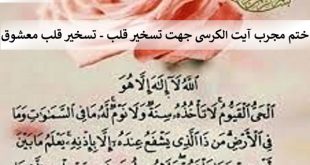 ختم مجرب آیت الکرسی جهت تسخیر قلب - تسخیر قلب معشوق
اللهُ لَا إِلَهَ إِلَّا هُوَ
الْحَيُّ الْقَيُّومُ لَا تَأْخُذُهُ سِنَةٌ وَلَا نَوْمٌ لَهُ مَا فِي السَّمَاوَاتِ وَمَا
فِي الْأَرْضِ مَنْ ذَا الَّذِي يَشْفَعُ عِنْدَهُ إِلَّا بِإِذْنِهِ يَعْلَمُ مَا بَيْنَ